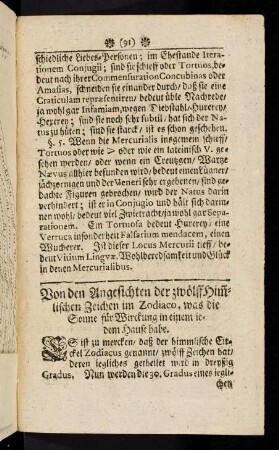 (91)
schiedliche Liebes-Personen; im Ehestande Itera-
tionem Conjugii; sind sie schieff oder Tortuos, be-
deut nach ihrer Commensuration Concubinas oder
Amasias, schneiden sie einander durch / daß sie eine
Craticulam repræsentiren / bedeut üble Nachrede /
ja wohl gar Infamiam, wegen Diebstahl / Hurerey /
Hexerey; sind sie noch sehr subtil / hat sich der Na-
tus zu hüten; sind sie starck / ist es schon geschehen.
§. 5. Wenn die Mercurialis insgemein schieff /
Tortuos oder wie > oder wie ein lateinisch V. ge-
sehen werden / oder wenn ein Creutzgen / Wartze
Nævus allhier befunden wird / bedeut einen Lügner /
zäckzernigen und der Generi sehr ergebenen / sind ge-
dachte Figuren gebrochen / wird der Natus darin
verhindert; ist er in Conjugio und hält sich darin-
nen wohl / bedeut viel Zwietracht / ja wohl gar Sepa-
rationem. Ein Tortuosa bedeut Hurerey / eine
Verruca insonderheit Falsarium mendacem, einen
Wucherer. Ist dieser Locus Mercurii tieff / be-
deut Vitium Linguæ. Wohlberedsamkeit und Glück
in denen Mercurialibus.
Von den Angesichten der zwölff Him̃-
lischen Zeichen im Zodiaco, was die
Sonne für Wirckung in einem ie-
dem Hause habe.
ES ist zu mercken / daß der himmlische Cir-
ckel Zodiacus genannt / zwölff Zeichen hat /
deren iegliches getheilet wird in dreyßig
Gradus. Nun werden die 30. Gradus eines iegli-
chen